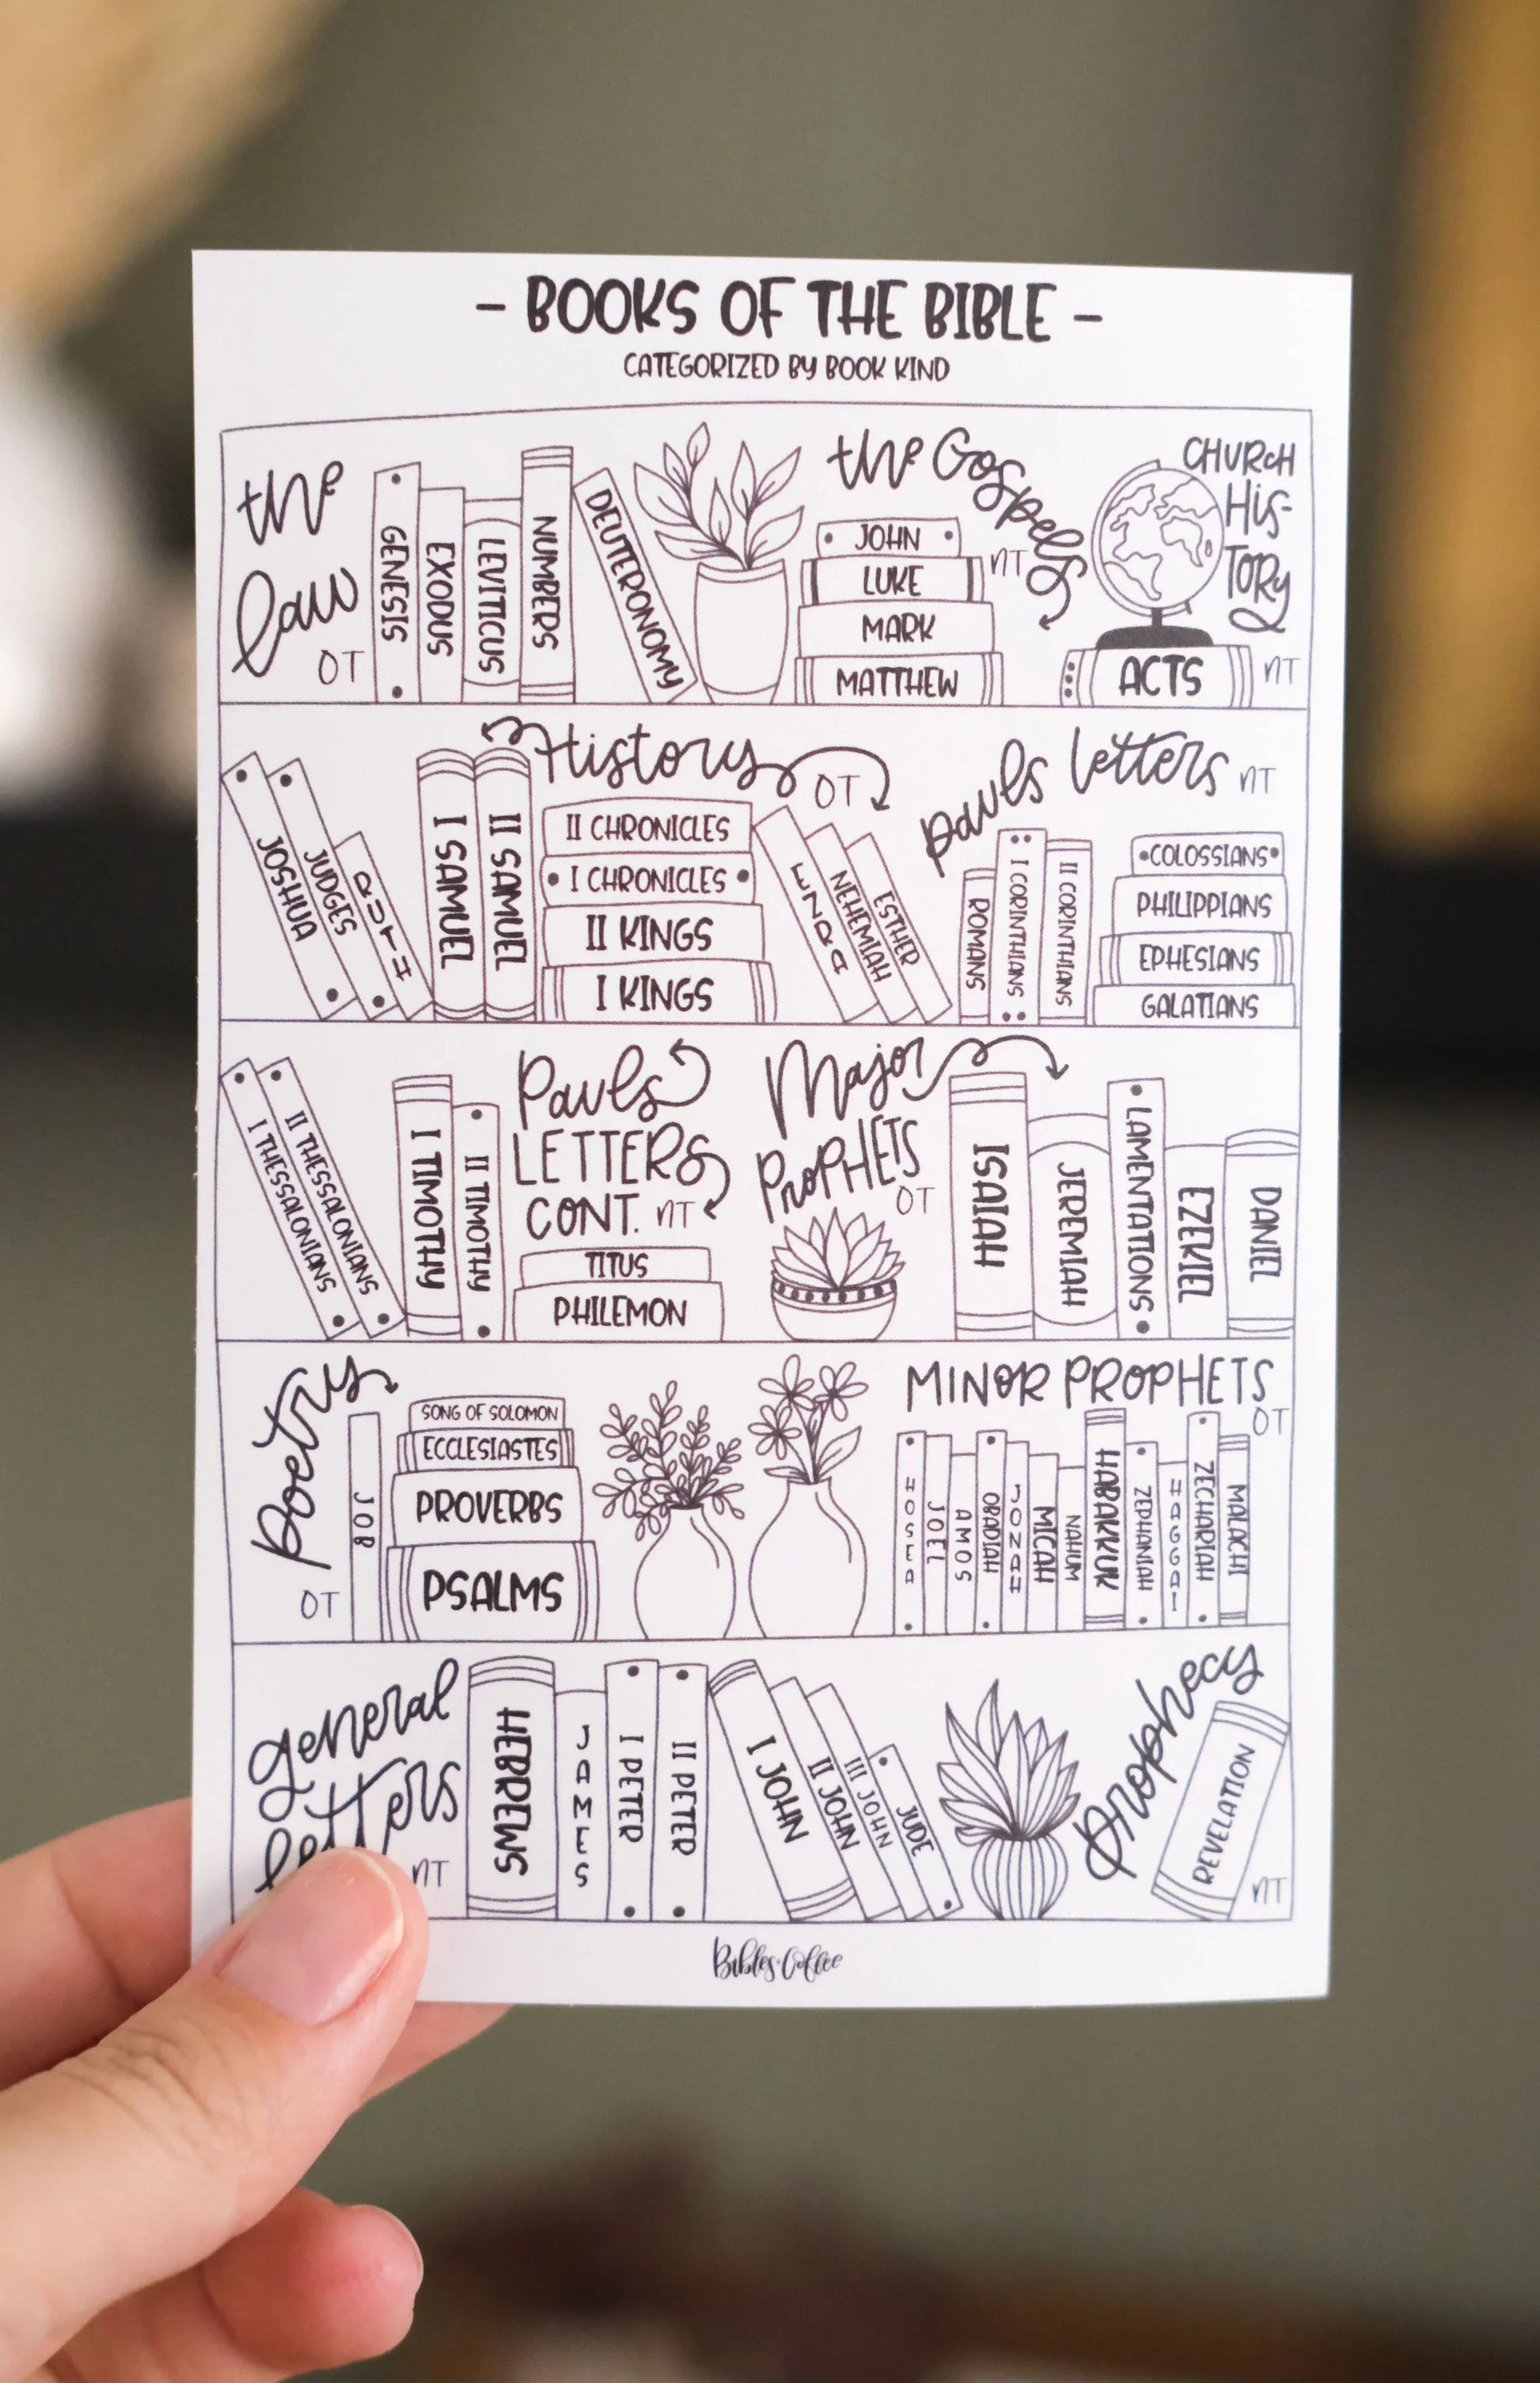 - BOOKS OF THE BIBLE -
CATEGORIZED BY BOOK KIND
the
law
OT
GENESIS
EXODUS
LEVITICUS
NUMBERS
DEUTERONOMY
the Gospels
NT
JOHN
LUKE
MARK
MATTHEW
CHURCH
HIS-
TORY
ACTS
NT
JOSHUA
JUDGES
RUTH
I SAMUEL
II SAMUEL
History
OT
II CHRONICLES
I CHRONICLES
II KINGS
I KINGS
EZRA
NEHEMIAH
ESTHER
Pauls letters
NT
ROMANS
I CORINTHIANS
II CORINTHIANS
COLOSSIANS
PHILIPPIANS
EPHESIANS
GALATIANS
I THESSALONIANS
II THESSALONIANS
I TIMOTHY
II TIMOTHY
Pauls
LETTERS
CONT. NT
TITUS
PHILEMON
Major
PROPHETS
OT
ISAIAH
JEREMIAH
LAMENTATIONS
EZEKIEL
DANIEL
Poetry
OT
JOB
SONG OF SOLOMON
ECCLESIASTES
PROVERBS
PSALMS
MINOR PROPHETS
OT
HOSEA
JOEL
AMOS
OBADIAH
JONAH
MICAH
NAHUM
HABAKKUK
ZEPHANIAH
HAGGAI
ZECHARIAH
MALACHI
general
letters
NT
HEBREWS
JAMES
I PETER
II PETER
I JOHN
II JOHN
III JOHN
JUDE
Prophecy
REVELATION
NT
Bibles & Coffee